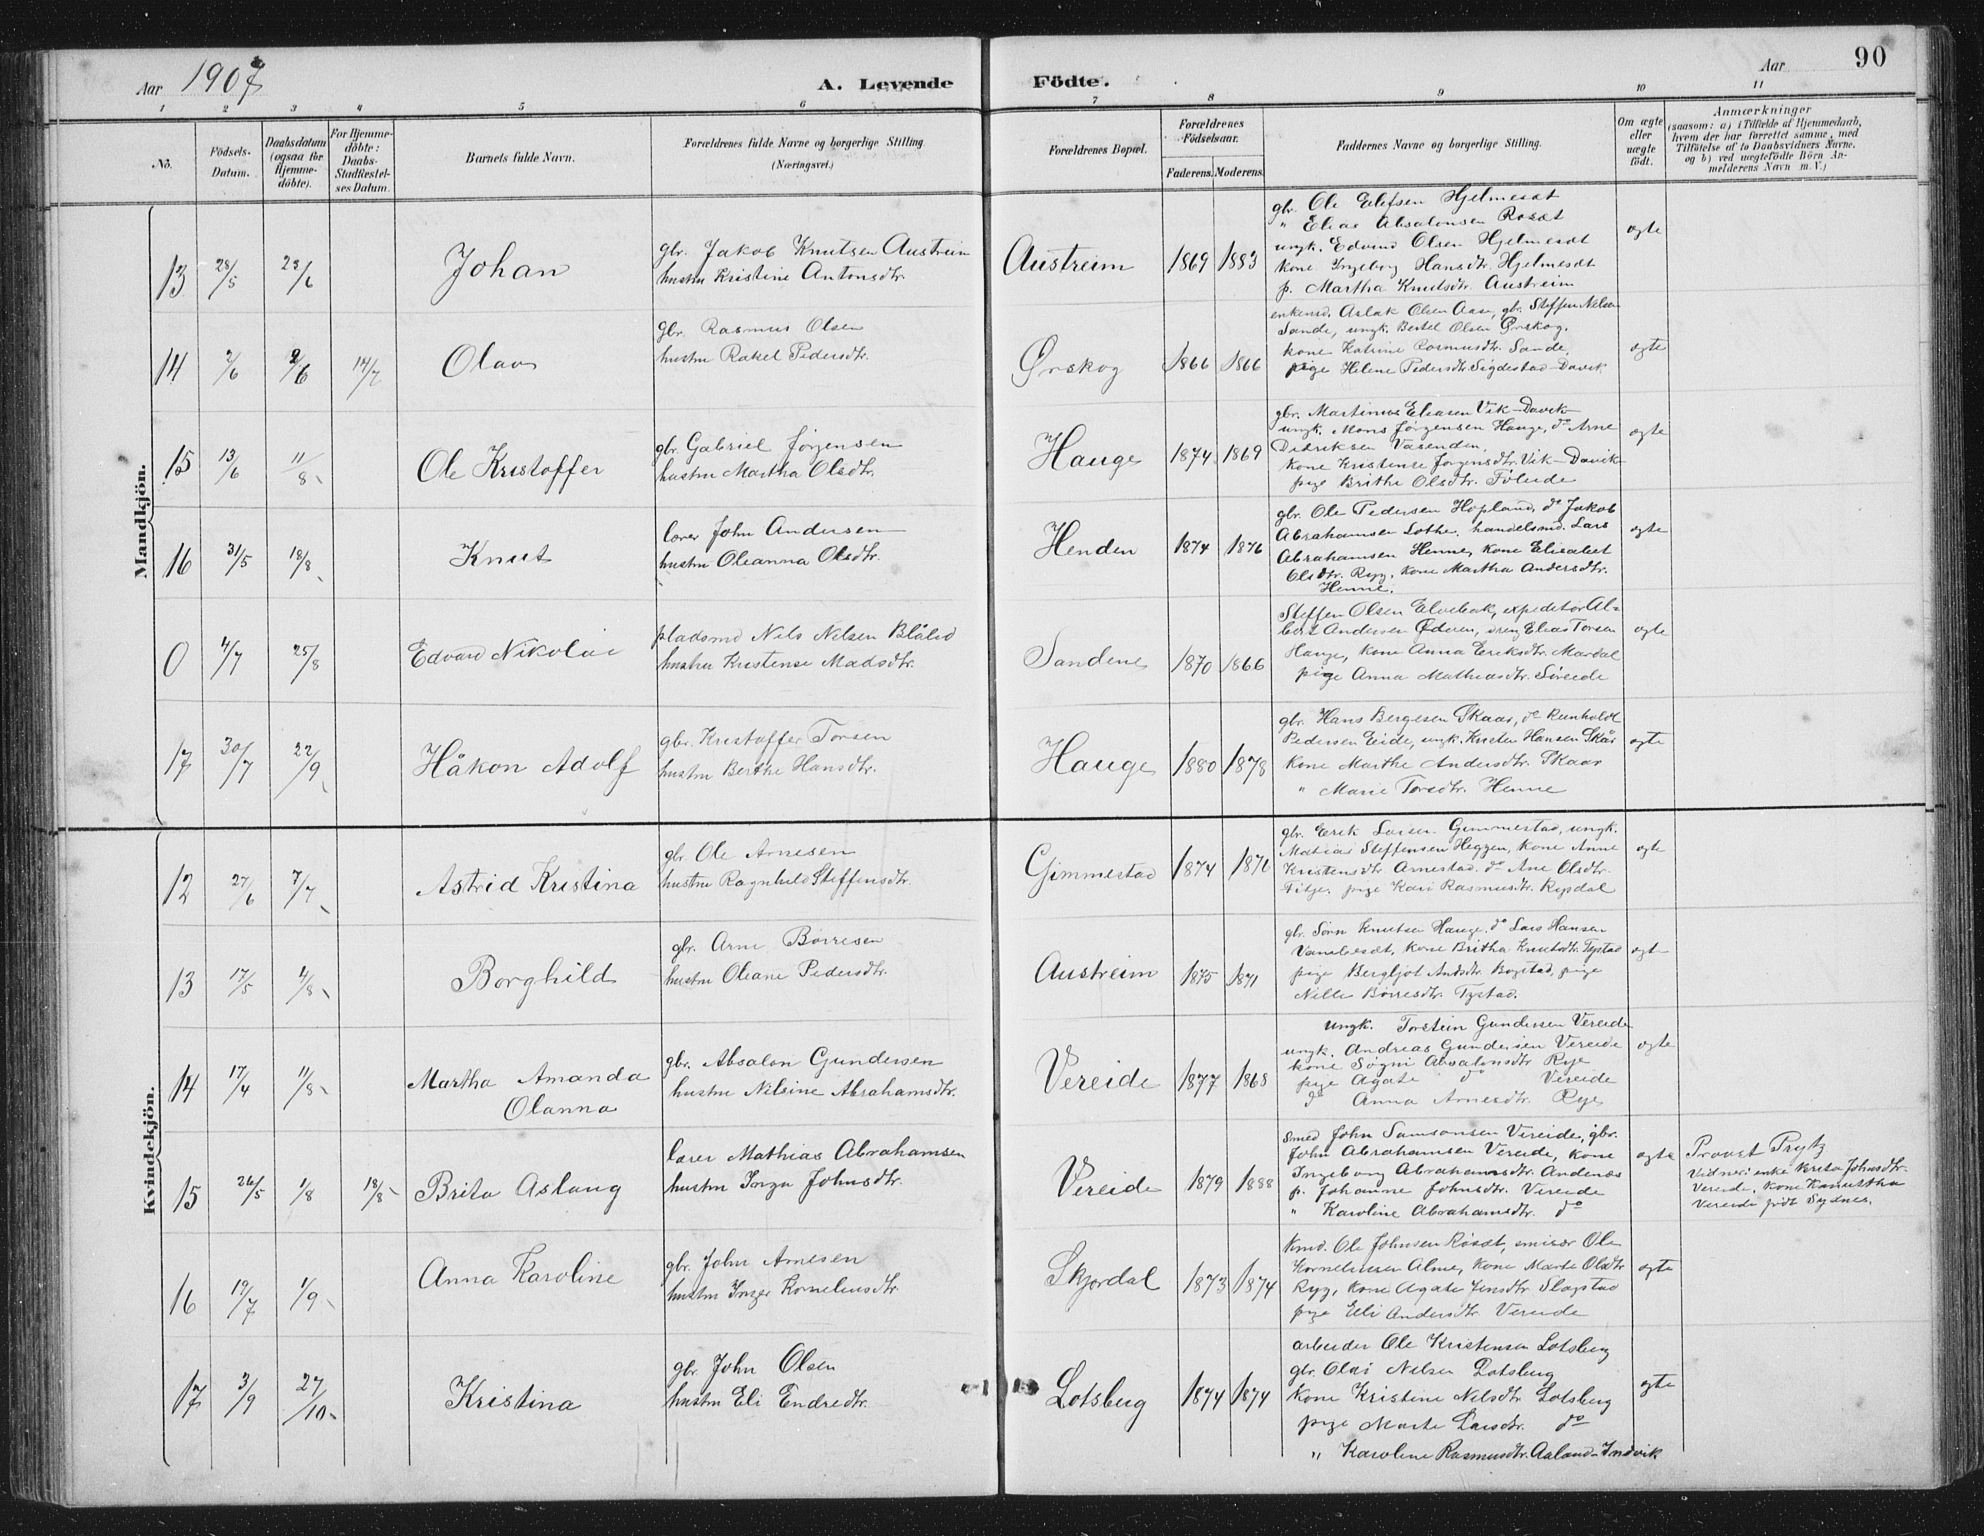 Aar 1907
A. Levende Födte.
Aar
90
1 2 3 4 5 6 7 8 9 10 11
No.
Födsels-Datum.
Daabsdatum (ogsaa for Hjemme-döbte).
For Hjemme-döbte: Daabs-Stadfæstel-ses Datum.
Barnets fulde Navn.
Forældrenes fulde Navne og borgerlige Stilling
(Næringsvei.)
Forældrenes Bopæl.
Forældrenes Födselsaar.
Faderens. Moderens.
Faddernes Navne og borgerlige Stilling.
Om ægte eller uægte født.
Anmærkninger
(saasom: a) i Tilfælde af Hjemmedaab, hvem der har forrettet samme, med Tilföielse af to Daabsvidners Navne, og b) ved uægtefödte Börn An-melderens Navn m. V.)
Mandkjön.
13 28/5 23/6 Johan
gbr. Jakob Knutsen Austreim
hustru Kristine Antonsdtr.
Austreim 1869 1883
gbr. Ole Elefsen Hjelmesæt
" Elias Absalonsen Rosæt
ungk. Edvind Olsen Hjelmesæt
kone Ingeborg Hansdtr. Hjelmesæt
p. Martha Knutsdtr. Austreim
ægte
14 2/6 9/6 14/7 Olav
gbr. Rasmus Olsen
hustru Rakel Pedersdtr.
Ørskog 1866 1866
enkemd. Aslak Olsen Aase, gbr. Steffen Nilsen
Sande, ungk. Bertel Olsen Ørskog,
kone Katrine Rasmusdtr. Sande,
pige Helene Pedersdtr. Sigdestad-Davik
ægte
15 13/6 11/8 Ole Kristoffer
gbr. Gabriel Jørgensen
hustru Martha Olsdtr.
Hauge 1874 1869
gbr. Martinus Eliasen Vik-Davik
ungk. Mons Jørgensen Hauge, do Arne
Didriksen Vasenden,
kone Kristense Jørgensdtr. Vik-Davik
pige Brithe Olsdtr. Föleide
ægte
16 31/5 18/8 Knut
lærer John Andersen
hustru Oleanna Olsdtr.
Henden 1874 1876
gbr. Ole Pedersen Hopland, do Jakob
Abrahamsen Lothe, handelsmd. Lars
Abrahamsen Henne, kone Elisabet
Olsdtr. Ryg, kone Martha Andersdtr.
Henne.
ægte
0 4/7 25/8 Edvard Nikolai
pladsmd Nils Nilsen Blålid
hustru Kristense Madsdtr.
Sandene 1870 1866
Steffen Olsen Elvebak, expeditör Al-
bert Andersen Øderen, dreng Elias Torsen
Hauge, kone Anna Eriksdtr. Mardal
pige Anna Mathiasdtr. Søreide
ægte
17 30/7 22/9 Håkon Adolf
gbr. Kristoffer Torsen
hustru Berthe Hansdtr.
Hauge 1880 1878
gbr. Hans Bergesen Skaar, do Runholdt
Pedersen Eide, ungk. Kristen Hansen Skår
kone Marthe Andersdtr. Skaar
" Marie Torsdtr. Henne
ægte
Kvindekjön.
12 27/6 7/7 Astrid Kristina
gbr. Ole Arnesen
hustru Ragnhild Steffensdtr.
Gimmestad 1874 1876
gbr. Erik Larsen Gimmestad, ungk.
Mathias Steffensen Heggen, kone Anne
Kristensdtr. Arnestad, do Ane Olsdtr.
Fitje, pige Kari Rasmusdtr. Rysdal
ægte
13 17/5 4/8 Borghild
gbr. Arne Børresen
hustru Oleane Pedersdtr.
Austreim 1875 1871
gbr. Sørn Knutsen Hauge, do Lars Hansen
Vanebesæt, kone Britha Knutsdtr. Tystad
pige Bergljot Andsdtr. Bogstad, pige
Nille Børresdtr. Tystad.
ægte
14 17/4 11/8 Martha Amanda
Olanna
gbr. Absalon Gundersen
hustru Nilsine Abrahamsdtr.
Vereide 1877 1868
ungk. Torstein Gundersen Vereide
ungk. Andreas Gundersen Vereide
kone Søgni Absalonsdtr Rye
pige Agate do Vereide
do Anna Arnesdtr. Rye
ægte
15 26/5 1/8 18/8 Brita Aslaug
lærer Mathias Abrahamsen
hustru Inga Johnsdtr.
Vereide 1879 1888
smed John Samsonsen Vereide, gbr.
John Abrahamsen Vereide, kone
Ingeborg Abrahamsdtr. Andenæs
p. Johanne Johnsdtr. Vereide
" Karoline Abrahamsdtr. do
ægte
Provst Prytz
Vidner: enke Brita Johnsdtr.
Vereide, kone Kanutha
Vereide født Sydnes.
16 19/7 1/9 Anna Karoline
gbr. John Arnesen
hustru Inger Kornelíusdtr
Skjerdal 1873 1874
kmd. Ole Johnsen Røsæt, snikar Ole
Korneliussen Alme, kone Marte Olsdtr
Ryg, kone Agate Jensdtr Slagstad
pige Eli Andersdtr. Vereide
ægte
17 3/9 27/10 Kristina
gbr. John Olsen
hustru Eli Endredtr.
Lotsberg 1874 1874
arbeider Ole Kristensen Lotsberg
gbr. Olai Nilsen Lotsberg
kone Kristine Nilsdtr Lotsberg
pige Marte Larsdtr. do
" Karoline Rasmusdtr. Aaland-Indvik
ægte